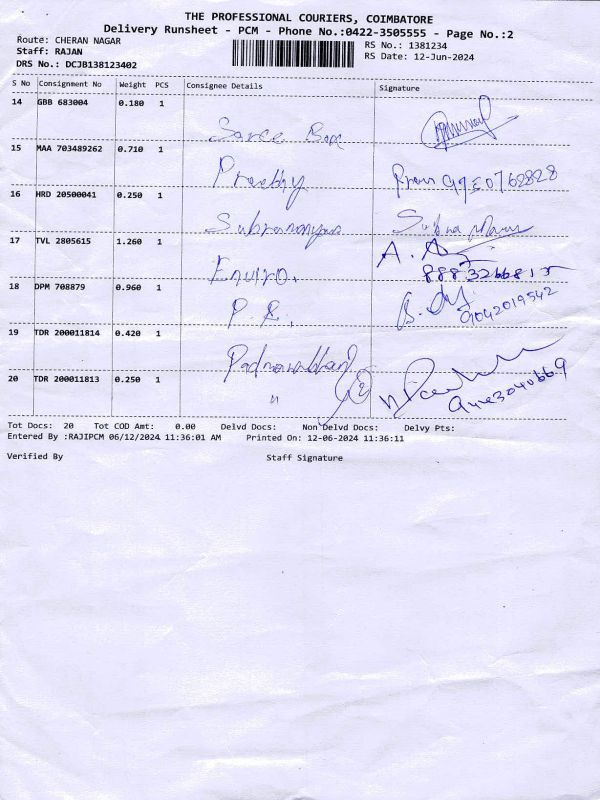 THE PROFESSIONAL COURIERS, COIMBATORE
Delivery Runsheet - PCM - Phone No.:0422-3505555 - Page No.:2
Route: CHERAN NAGAR
RS No.: 1381234
Staff: RAJAN
RS Date: 12-Jun-2024
DRS No.: DCJB138123402
S No Consignment No Weight PCS Consignee Details Signature
14 GBB 683004 0.180 1
15 MAA 703489262 0.710 1 Preethy
16 HRD 20500041 0.250 1 Subramaniyan
17 TVL 2805615 1.260 1 Enviro. 8883266815
18 DPM 708879 0.960 1 P R. 9042019542
19 TDR 200011814 0.420 1 Padmanabhan
20 TDR 200011813 0.250 1 "
Tot Docs: 20 Tot COD Amt: 0.00 Delvd Docs: Non Delvd Docs: Delvy Pts:
Entered By :RAJIPCM 06/12/2024 11:36:01 AM Printed On: 12-06-2024 11:36:11
Verified By Staff Signature